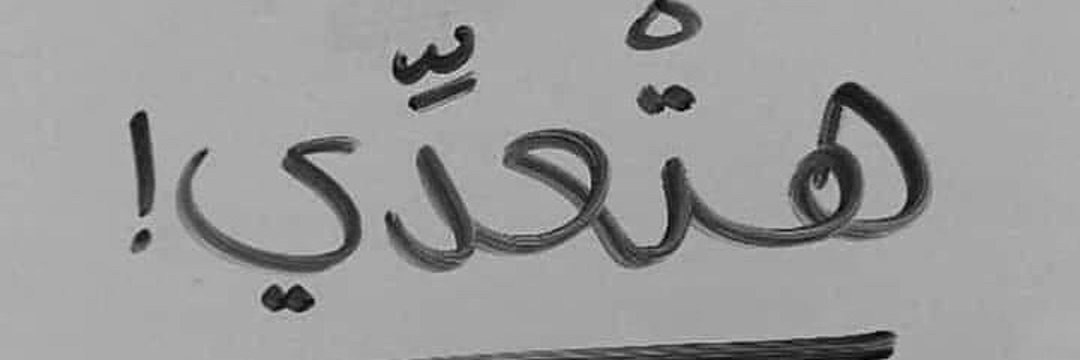 هتْعدِّي!